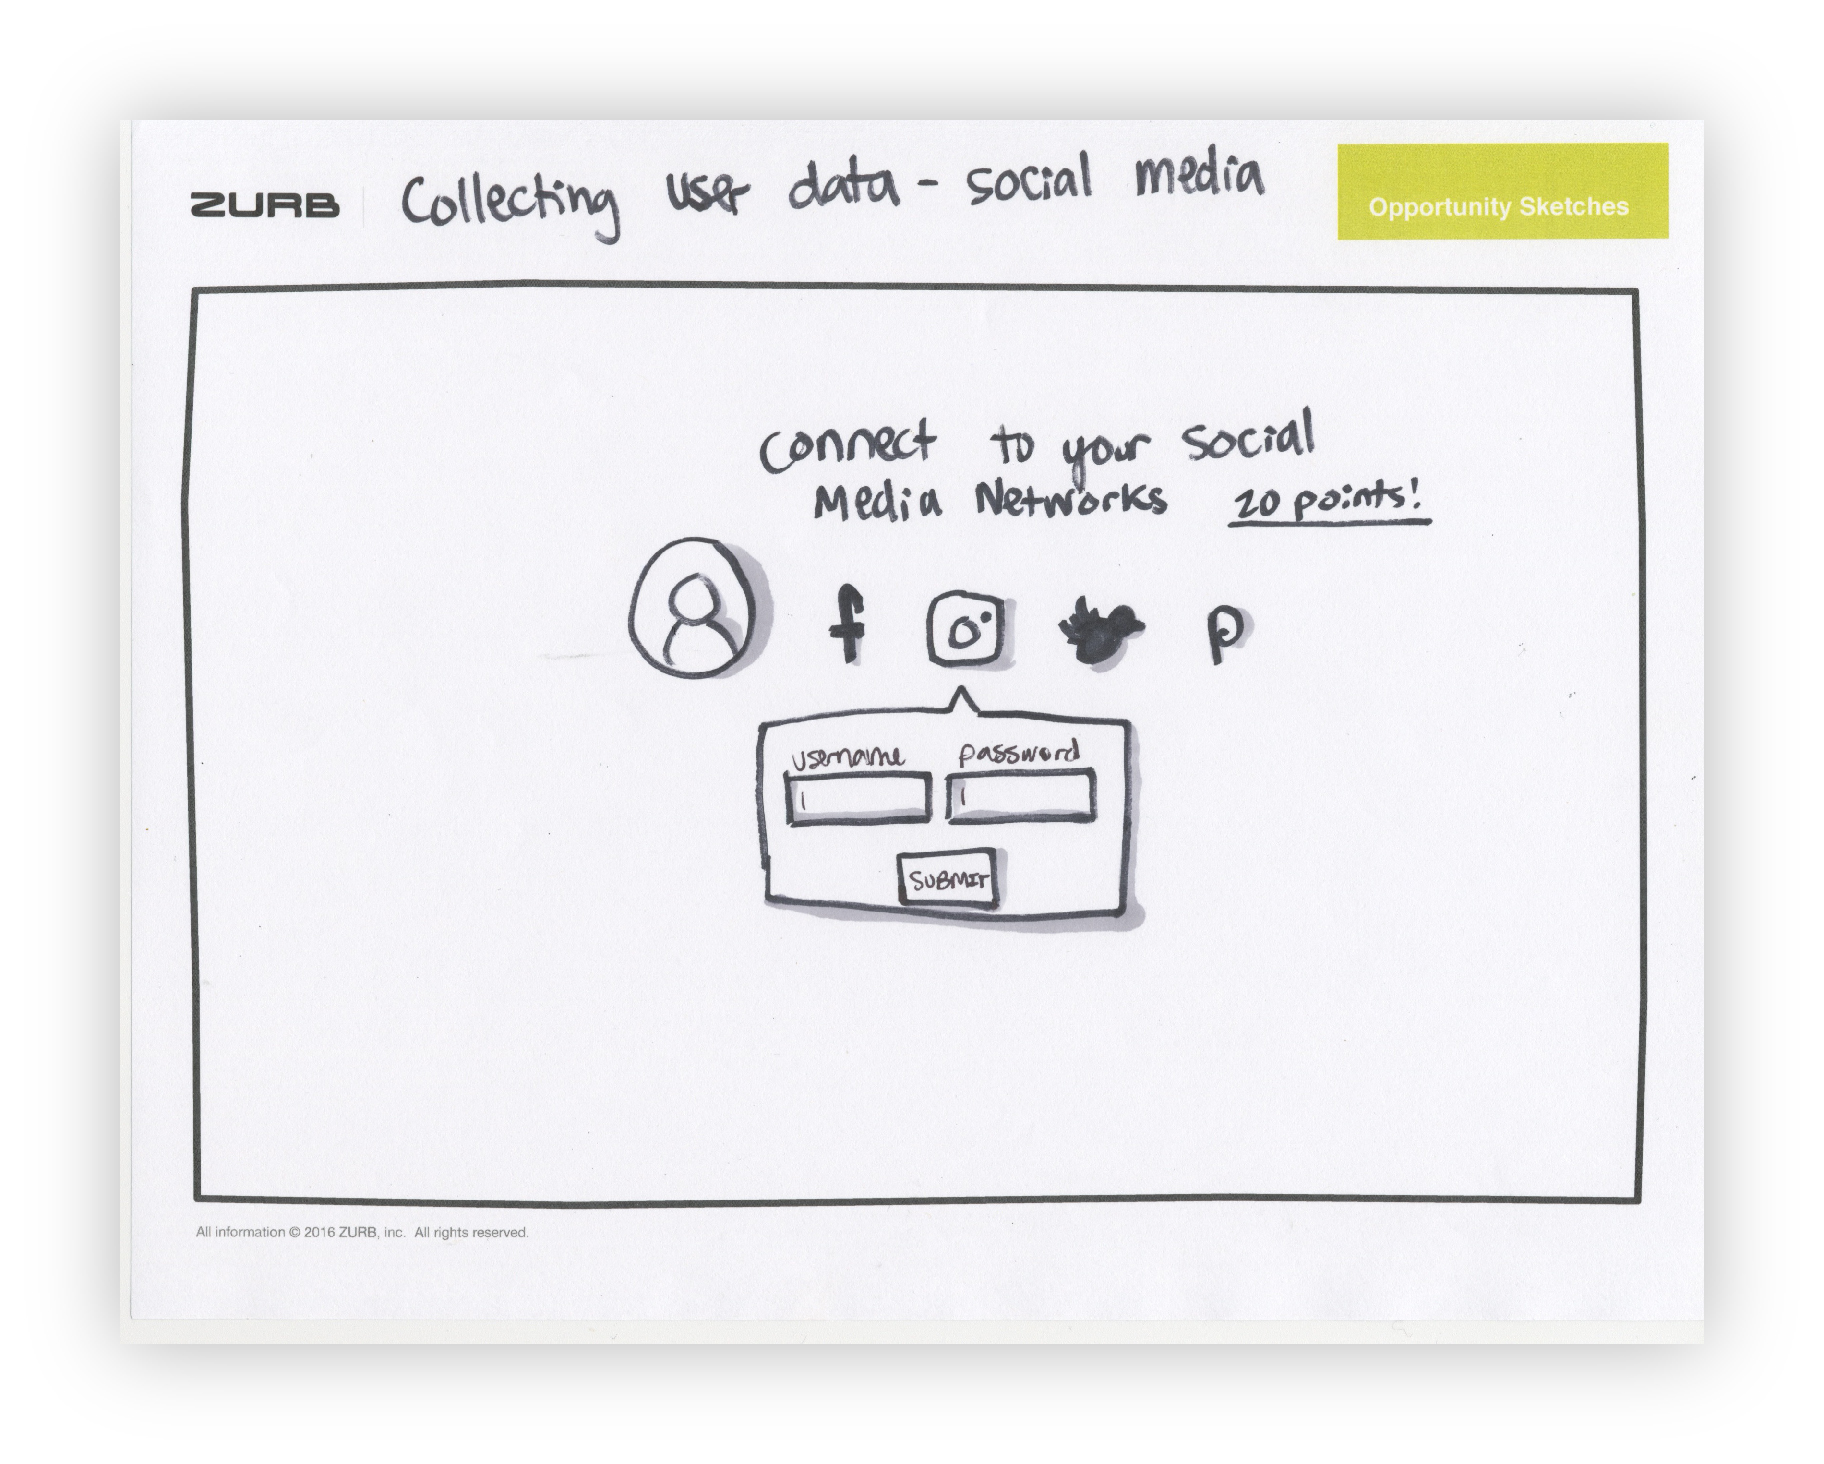 ZURB
Collecting user data - social media
Opportunity Sketches
Connect to your social
Media Networks 20 points!
f
p
username password
SUBMIT
All information © 2016 ZURB, inc. All rights reserved.